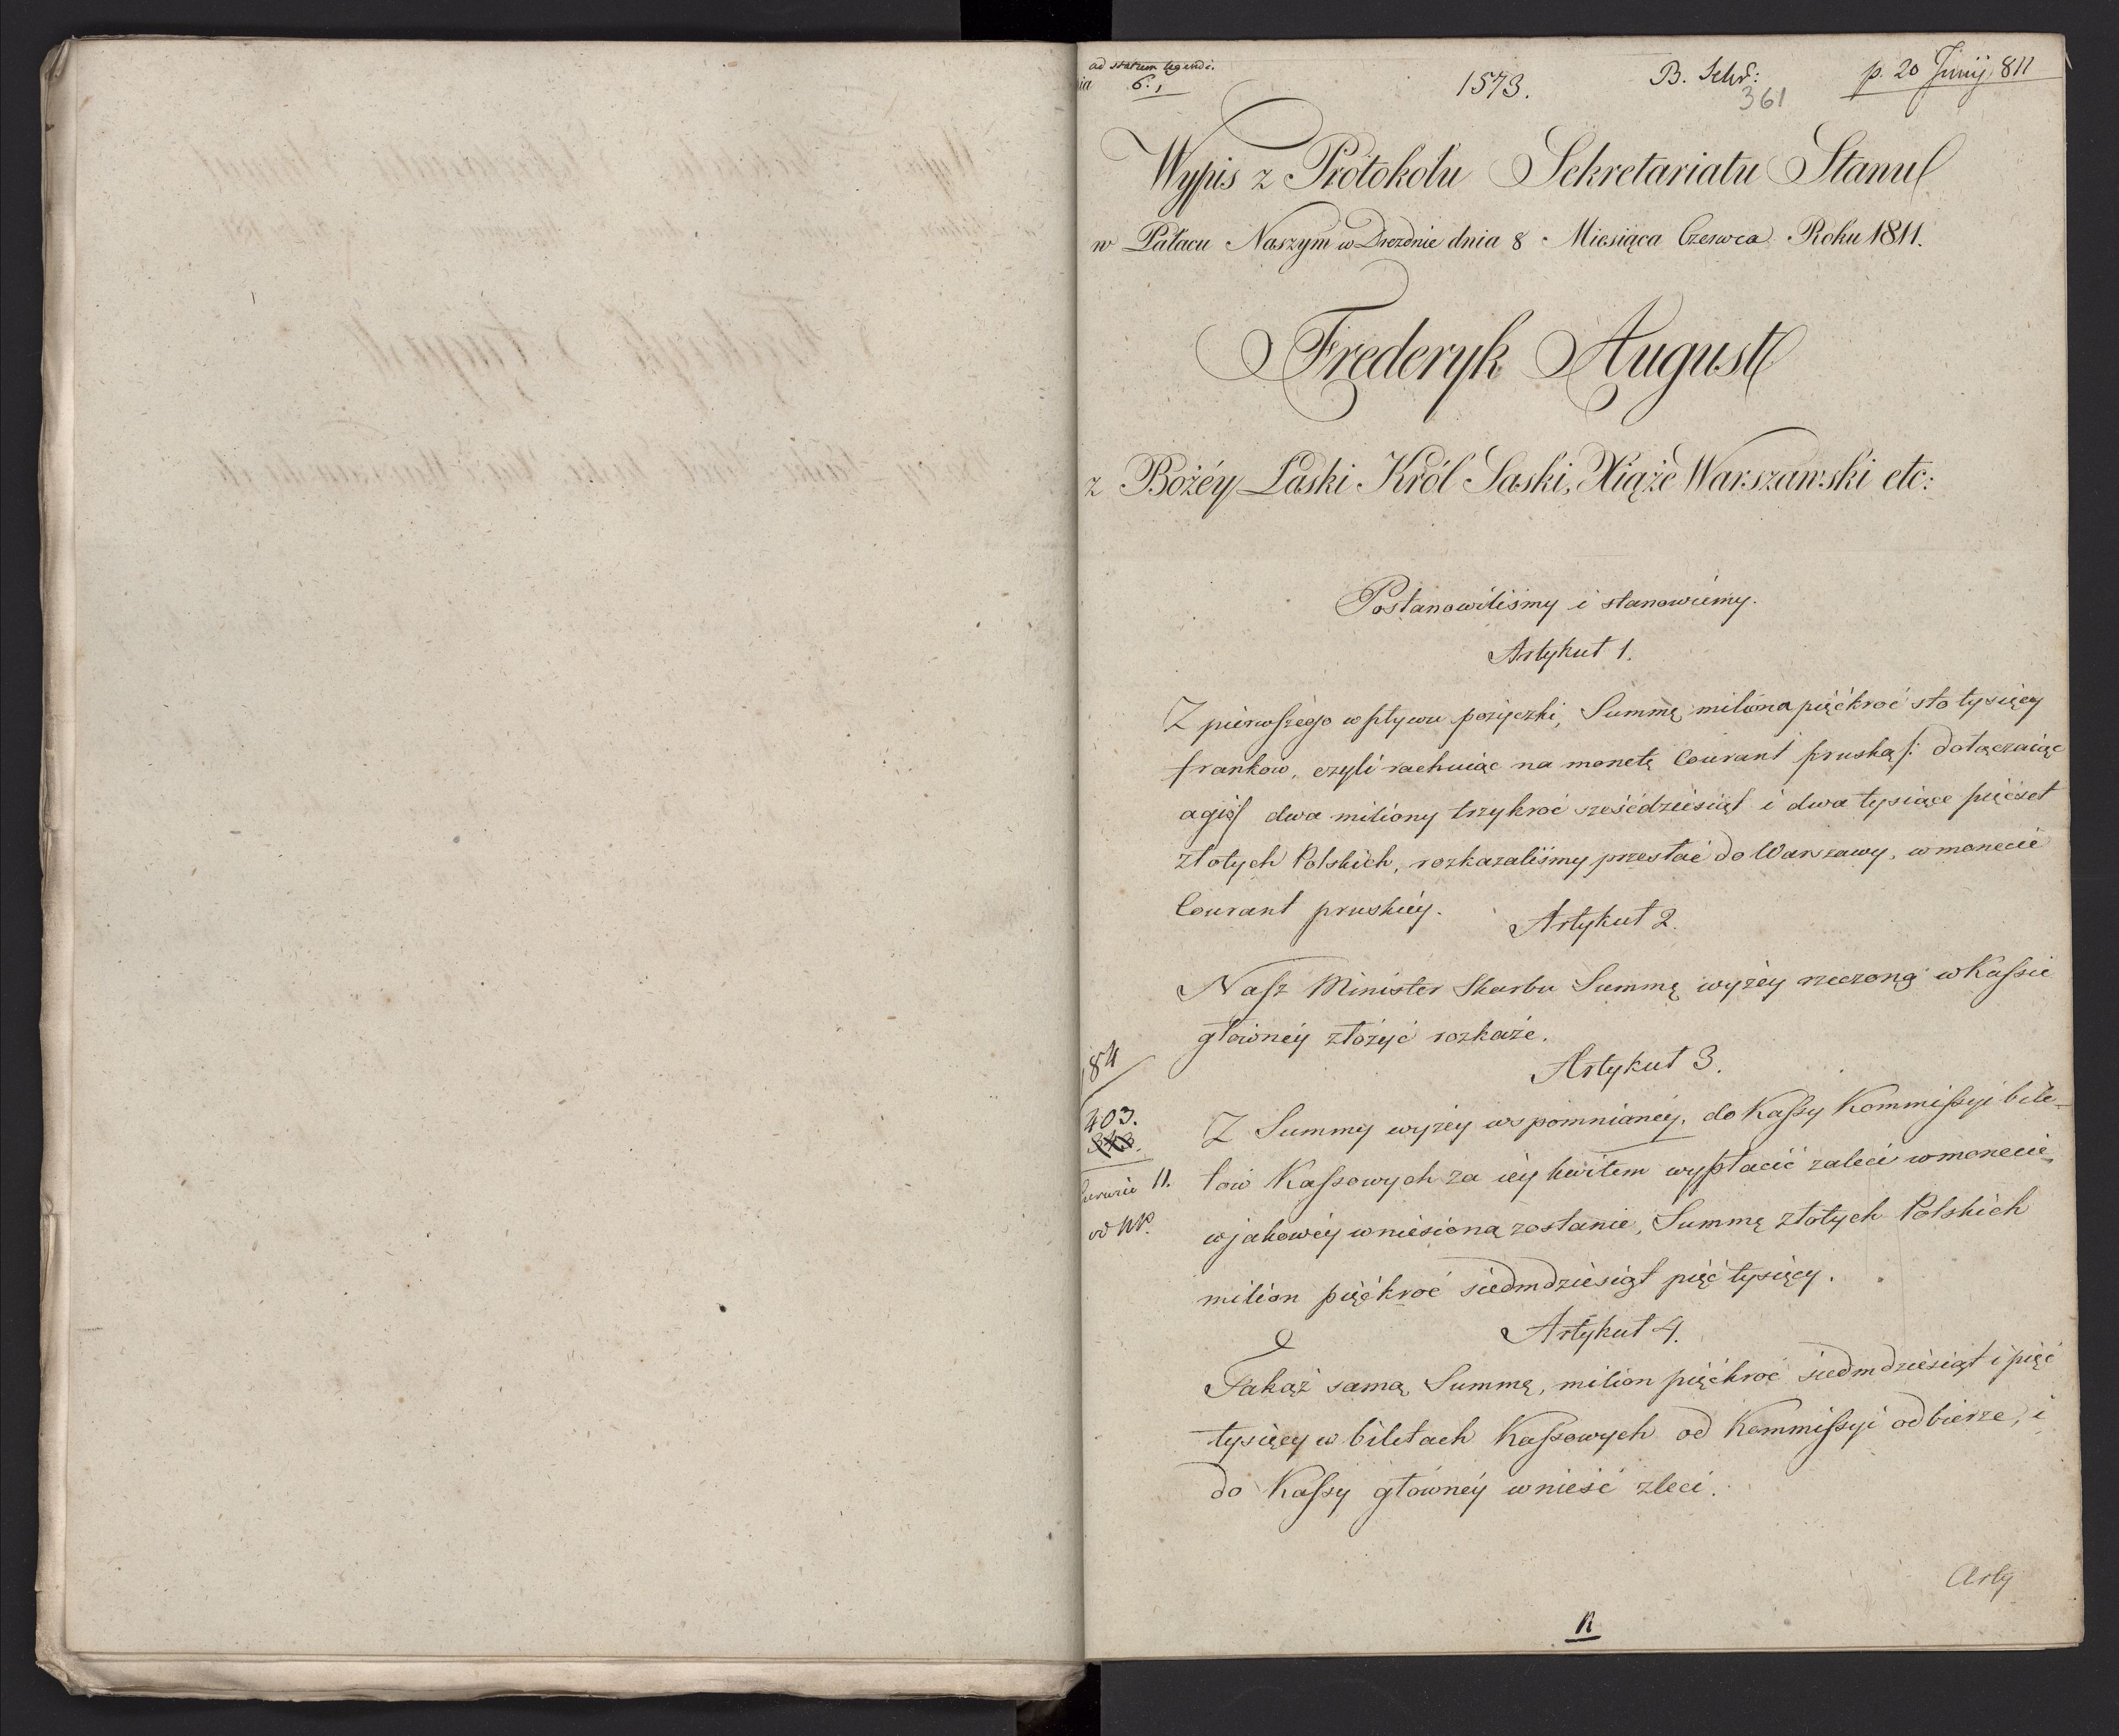 ad statum legendi.
6.
1573.
B. Schr:
p. 20 Junij 811
361
Wypis z Protokołu Sekretariatu Stanu
w Pałacu Naszym w Dreznie dnia 8 Miesiąca Czerwca Roku 1811.
Frederyk August
z Bożéy Łaski Król Saski, Xiąże Warszawski etc:
Postanowiliśmy i stanowiemy.
Artykuł 1.
Z pierwszego wpływu pożyczki, Summę miliona pięćkroć sto tysięcy
frankow, czyli rachuiąc na monetę Courant pruską /: dołączaiąc
agio :/ dwa miliony trzykroć sześćdziesiąt i dwa tysiące pięćset
złotych Polskich, rozkazaliśmy przesłać do Warszawy, w monecie
Courant pruskiéy.
Artykuł 2.
Nasz Minister Skarbu Summę wyżéy rzeczoną w Kassie
głównéy złożyć rozkaże.
Artykuł 3.
84
403.
Z Summy wyżéy wspomnianéy, do Kassy Kommissyi bile-
11.
tow Kassowych za iéy kwitem wypłacić zaleci w monecie,
w jakowéy wniesioną zostanie, Summę złotych Polskich
milion pięćkroć siedmdziesiąt pięć tysięcy.
Artykuł 4.
Takąż samą Summę, milion pięćkroć siedmdziesiąt i pięć
tysięcy w biletach Kassowych od Kommissyi odbierze, i
do Kassy głównéy wnieść zleci.
Arty
R